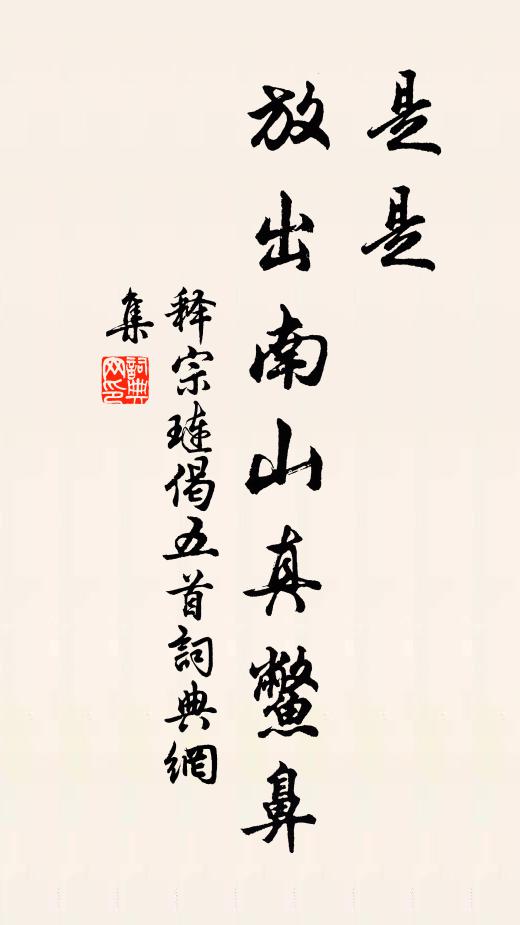 是是
放出南山真鱉鼻
释宗璉偈五首詞典網
集
詞典網印